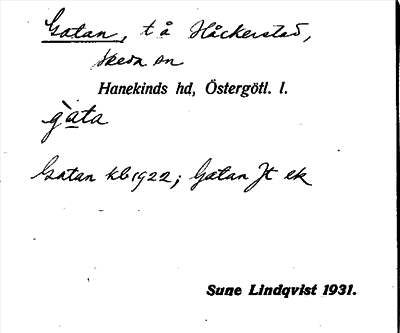 Gatan, t å Håckerstad,
Skeda sn
Hanekinds hd, Östergötl. l.
gàta
Gatan kb 1922; Gatan Jt ek
Sune Lindqvist 1931.